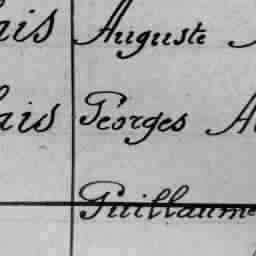 ais Auguste A
ais Georges Al
Guillaume